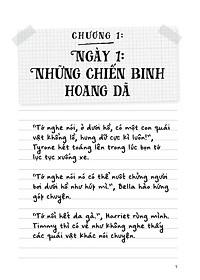 CHƯƠNG 1:
NGÀY 1:
NHỮNG CHIẾN BINH
HOANG DÃ
"Tớ nghe nói, ở dưới hồ, có một con quái
vật khổng lồ, hung dữ cực kì luôn!",
Tyrone hét toáng lên trong lúc bọn tớ
lục tục xuống xe.
"Tớ nghe nói nó có thể nuốt chửng người
bơi dưới hồ như húp mì.", Bella hào hứng
góp chuyện.
"Tớ nổi hết da gà.", Harriet rùng mình.
Timmy thì có vẻ như không nghe thấy
các quái vật khác nói chuyện.